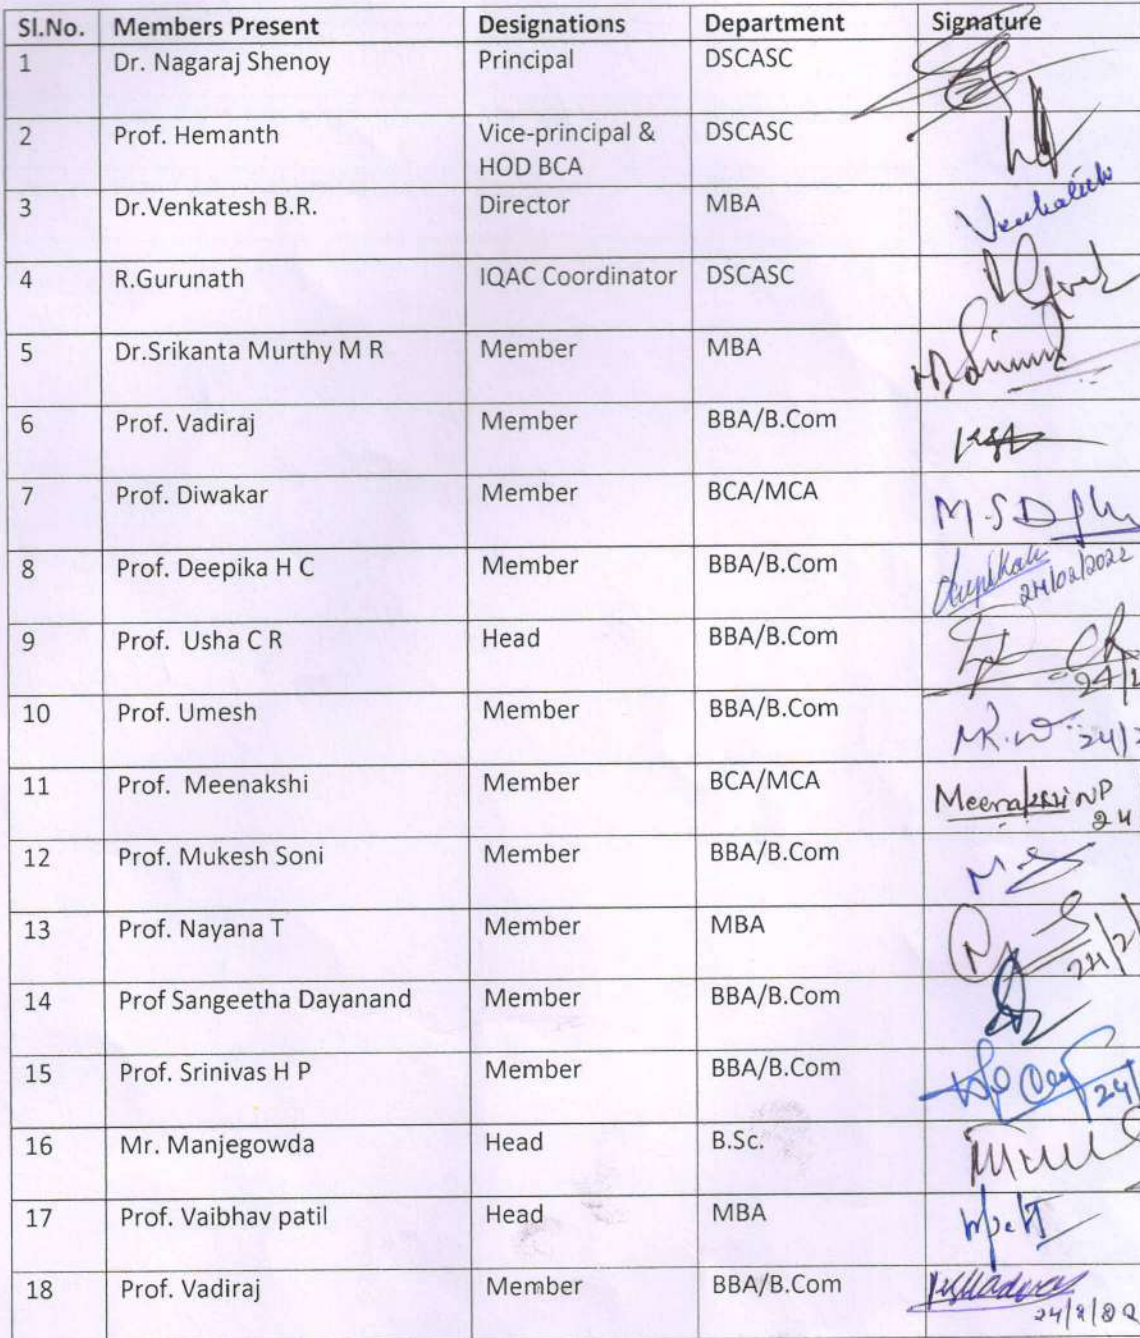 Sl.No. Members Present Designations Department Signature
1 Dr. Nagaraj Shenoy Principal DSCASC
2 Prof. Hemanth Vice-principal & DSCASC
HOD BCA
3 Dr.Venkatesh B.R. Director MBA
4 R.Gurunath IQAC Coordinator DSCASC
5 Dr.Srikanta Murthy M R Member MBA
6 Prof. Vadiraj Member BBA/B.Com
7 Prof. Diwakar Member BCA/MCA M.S.D
8 Prof. Deepika H C Member BBA/B.Com
24/02/2022
9 Prof. Usha C R Head BBA/B.Com
24/2
10 Prof. Umesh Member BBA/B.Com 24/2
11 Prof. Meenakshi Member BCA/MCA Meenakshi NP
24
12 Prof. Mukesh Soni Member BBA/B.Com
13 Prof. Nayana T Member MBA 24/2/
14 Prof Sangeetha Dayanand Member BBA/B.Com
15 Prof. Srinivas H P Member BBA/B.Com 24/
16 Mr. Manjegowda Head B.Sc.
17 Prof. Vaibhav patil Head MBA
18 Prof. Vadiraj Member BBA/B.Com